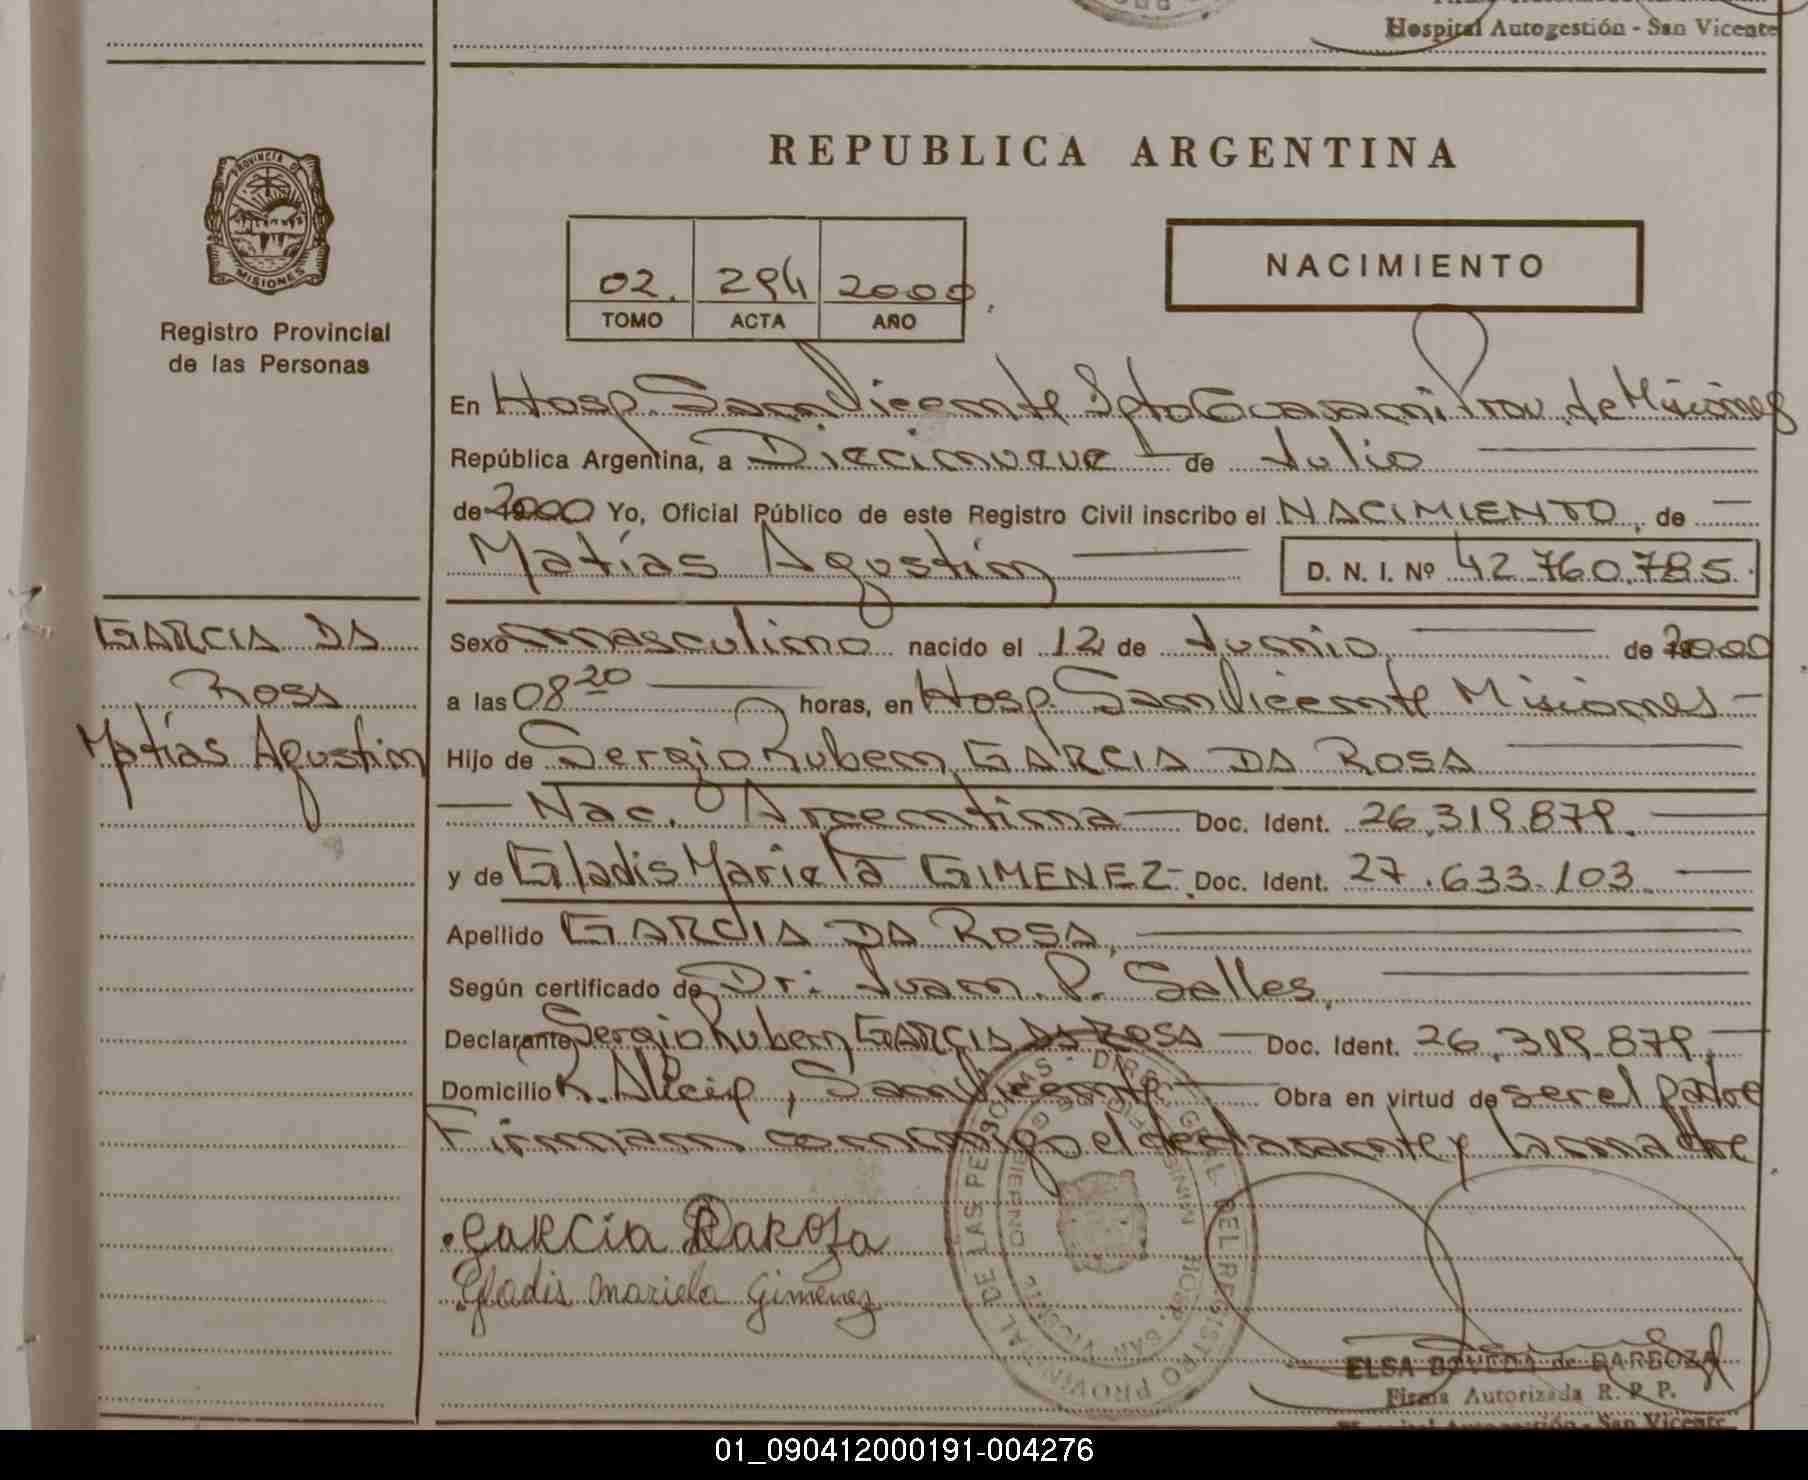 Hospital Autogestión - San Vicente
PROVINCIA DE
MISIONES
Registro Provincial
de las Personas
REPUBLICA ARGENTINA
02. 294 2000.
TOMO ACTA AÑO
NACIMIENTO
En Hosp. San Vicente Dpto Guarani Prov. de Misiones
República Argentina, a Diecinueve de Julio
de 2000 Yo, Oficial Público de este Registro Civil inscribo el NACIMIENTO, de
Matías Agustin D. N. I. Nº 42.760.785.
GARCIA DA
Rosa
Matías Agustin
Sexo masculino nacido el 12 de Junio de 2000
a las 08 20 horas, en Hosp. San Vicente Misiones
Hijo de Sergio Ruben GARCIA DA ROSA
Nac. Argentina Doc. Ident. 26.319.879.
y de Gladis Mariela GIMENEZ Doc. Ident. 27.633.103
Apellido GARCIA DA ROSA,
Según certificado de Dr: Juan P. Salles,
Declarante Sergio Ruben GARCIA DA ROSA Doc. Ident. 26.319.879,
Domicilio, San Vicente Obra en virtud de ser el padre
Firman conmigo el declarante y la madre
Garcia Darosa
Gladis Mariela Gimenez
ELSA BOVEDA de BARBOZA
Firma Autorizada R. P. P.
Hospital Autogestión - San Vicente
01_090412000191-004276